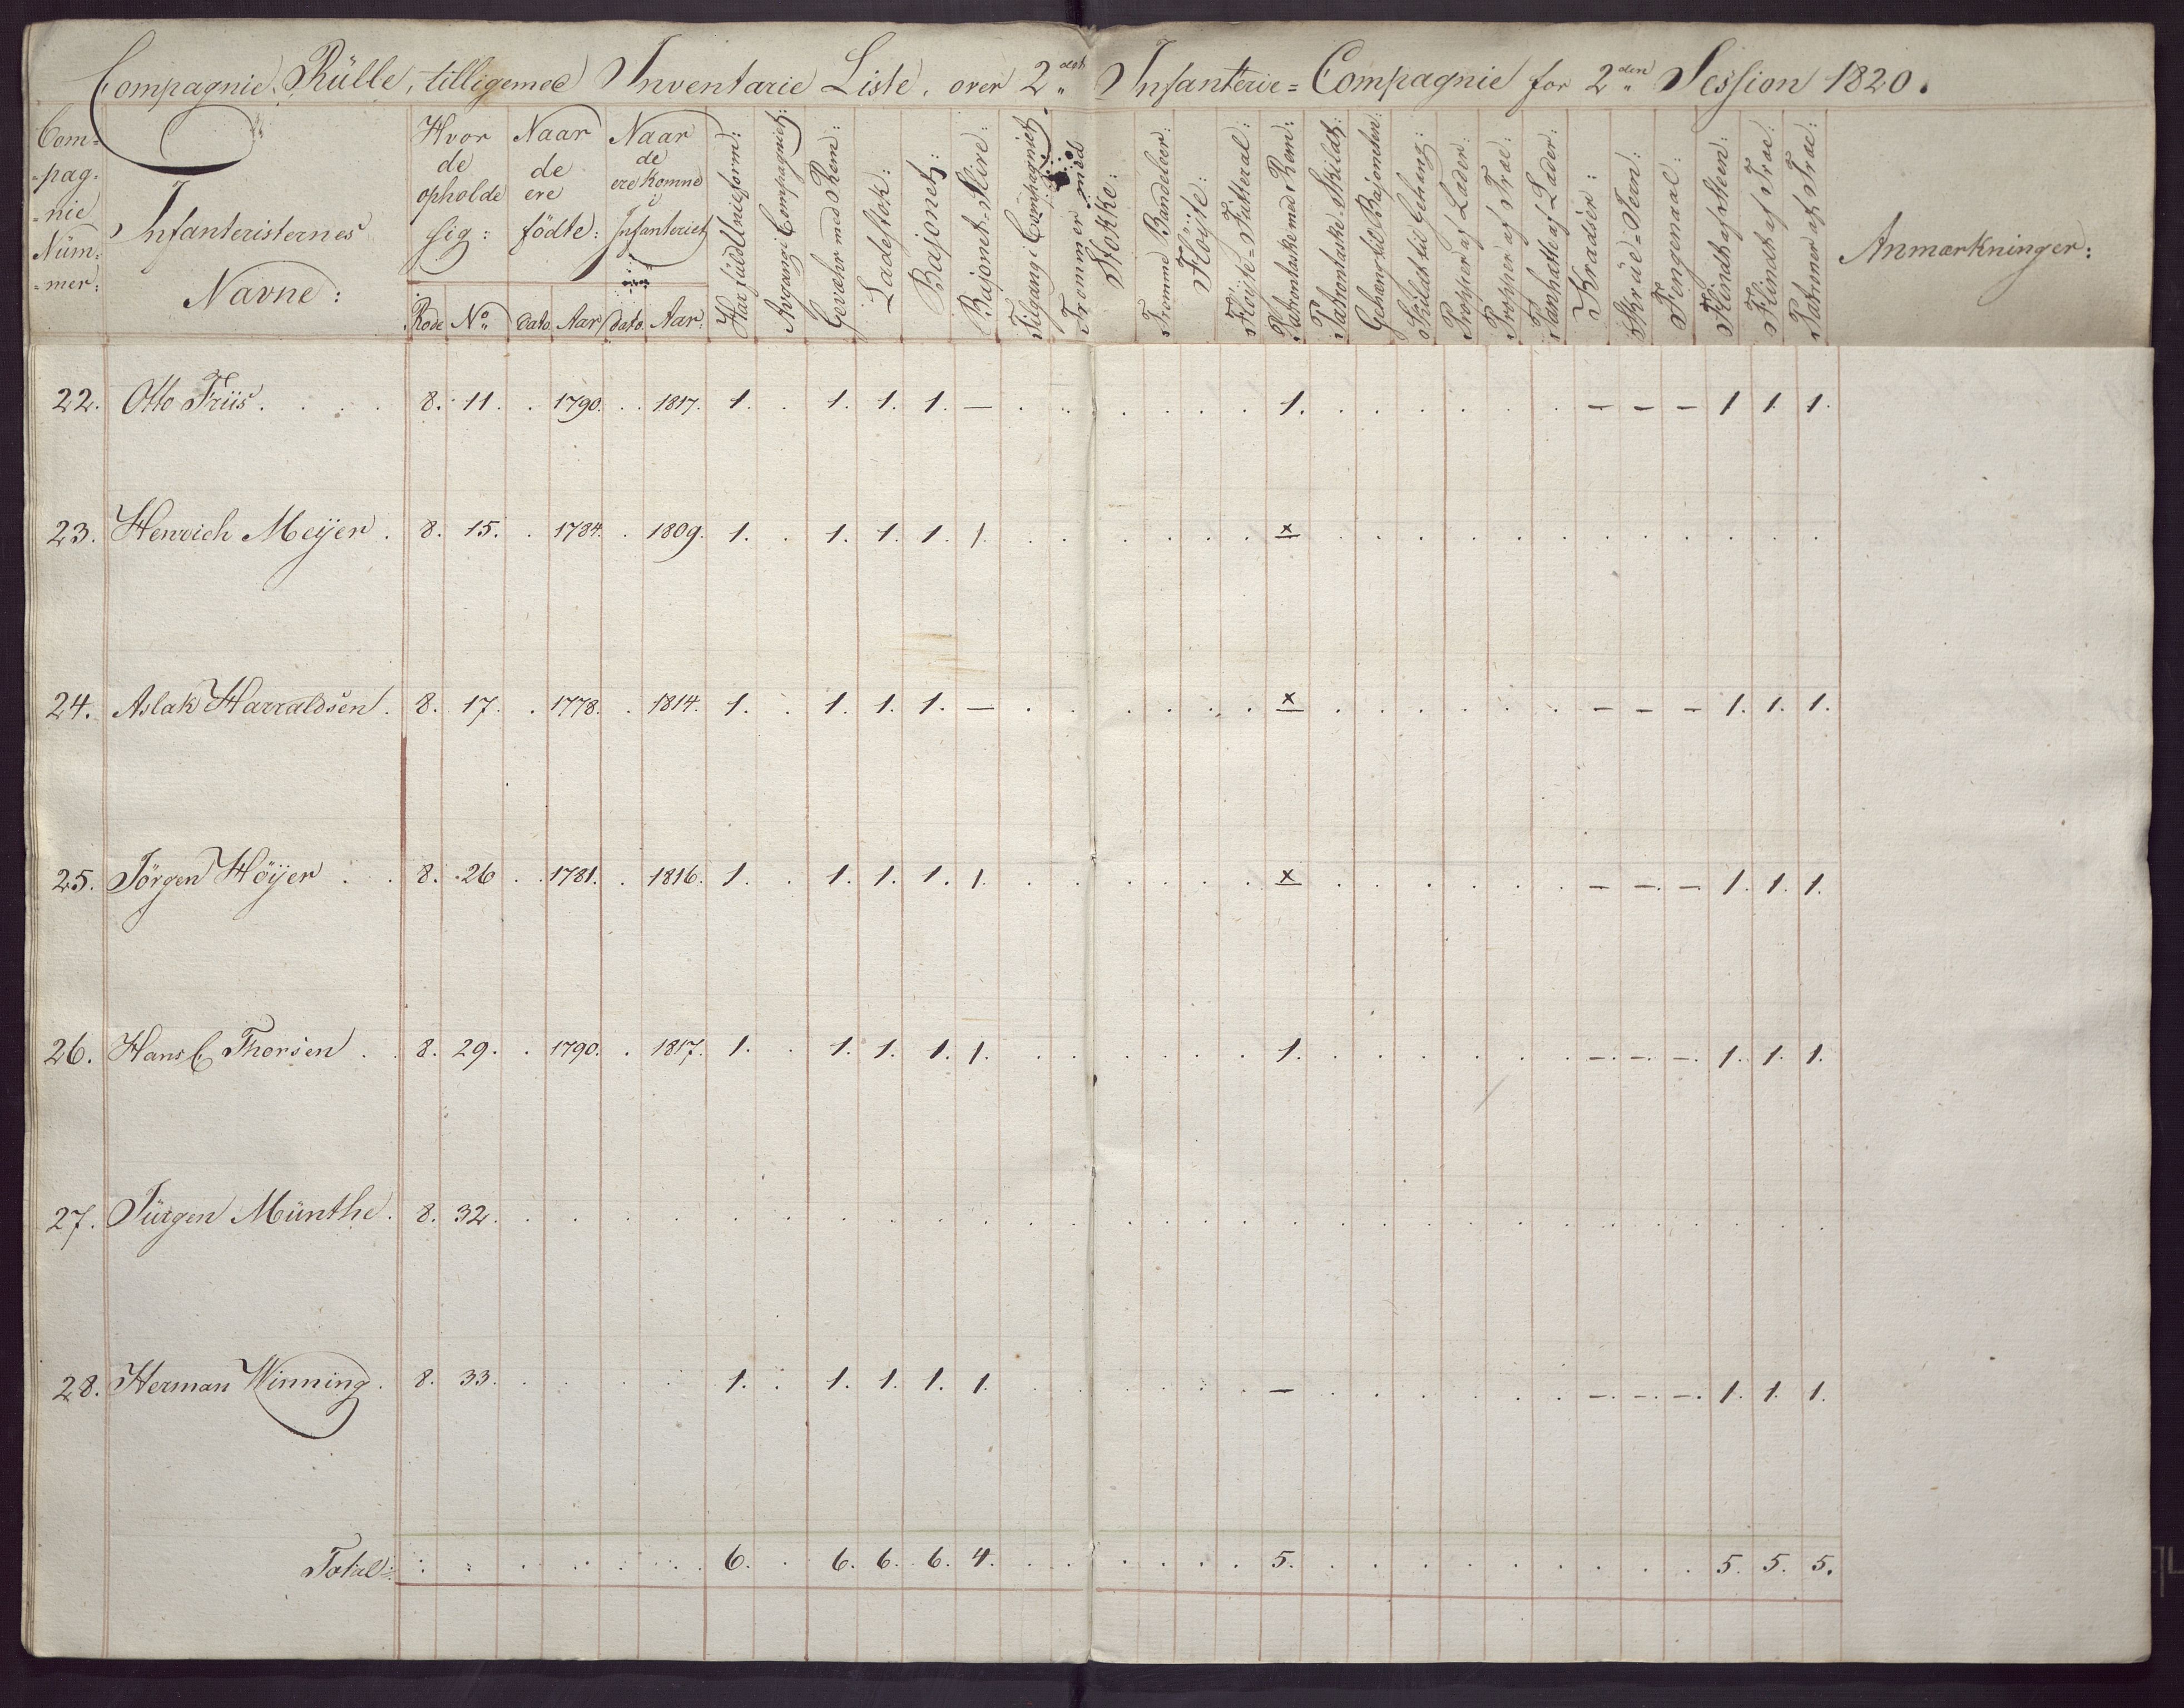 Compagnie-Rülle, tilligemed Inventarie Liste, over 2det Infanterie=Compagnie for 2den Session 1820.
Com=
=pag=
=nie
Nüm=
=mer:
Infanteristernes
Navne:
Hvor
de
opholde
sig:
Rode No
Naar
de
ere
födte:
Dato Aar
Naar
de
ere komne
i
Infanteriet
Dato Aar:
Har fuld Uniform:
Avgang i Compagniet:
Geværhr med Rem:
Ladestok:
Bajonet:
Bajonet-Skire:
Tilgang i Compagniet
Trommer med
Stokke:
Tromme Bandeleer:
Flöyte:
Flöyte-Futteral:
Patrontaske med Rem:
Patrontaske-Skildt:
Gehæng til Bajonetten:
Skildt til Gehæng:
Propper af Læder:
Propper af Træ:
Panhatte af Læder:
Kradser:
Skrüe-Jern:
Fængenaal:
Flindt af Steen:
Flindt af Træ:
Patroner af Træ:
Anmærkninger:
22. Otto Friis. 8. 11. 1790. 1817. 1. 1. 1. 1. — 1. — — — 1 1. 1.
23. Henrich Meÿer. 8. 15. 1784. 1809. 1. 1. 1. 1. 1. x
24. Aslak Harraldsen. 8. 17. 1778. 1814. 1. 1. 1. 1. — x — — — 1. 1. 1.
25. Jörgen Höÿer. 8. 26 1781. 1816. 1. 1. 1. 1. 1. x — — — 1. 1. 1.
26. Hans C Thorsen. 8. 29. 1790. 1817. 1. 1. 1. 1. 1. 1. — — — 1. 1. 1.
27. Jürgen Münthe. 8. 32.
28. Herman Winning. 8. 33. 1. 1. 1. 1. 1. — — — — 1. 1. 1.
Total: 6. 6. 6. 6. 4. 5. 5. 5. 5.